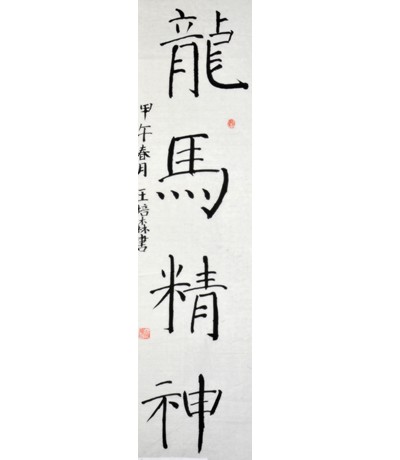 龍馬精神
甲午春月 王培森書